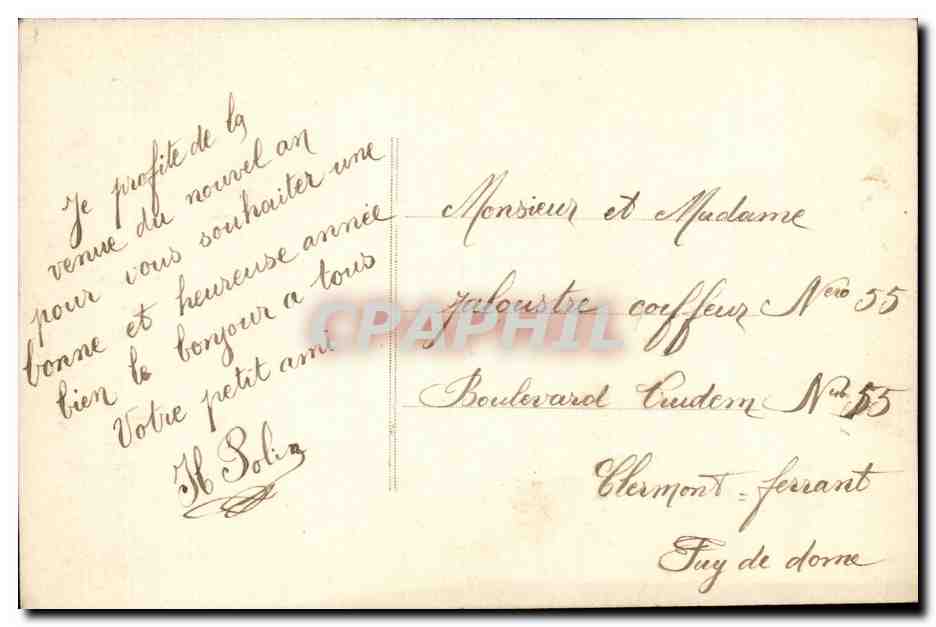 Je profite de la
venue du nouvel an
pour vous souhaiter une
bonne et heureuse année
bien le bonjour a tous
Votre petit ami
H Polin
Monsieur et Madame
Jaloustre coiffeur Nero 55
Boulevard Trudem Nero 55
Clermont = ferrant
Puy de dome
CPAPHIL